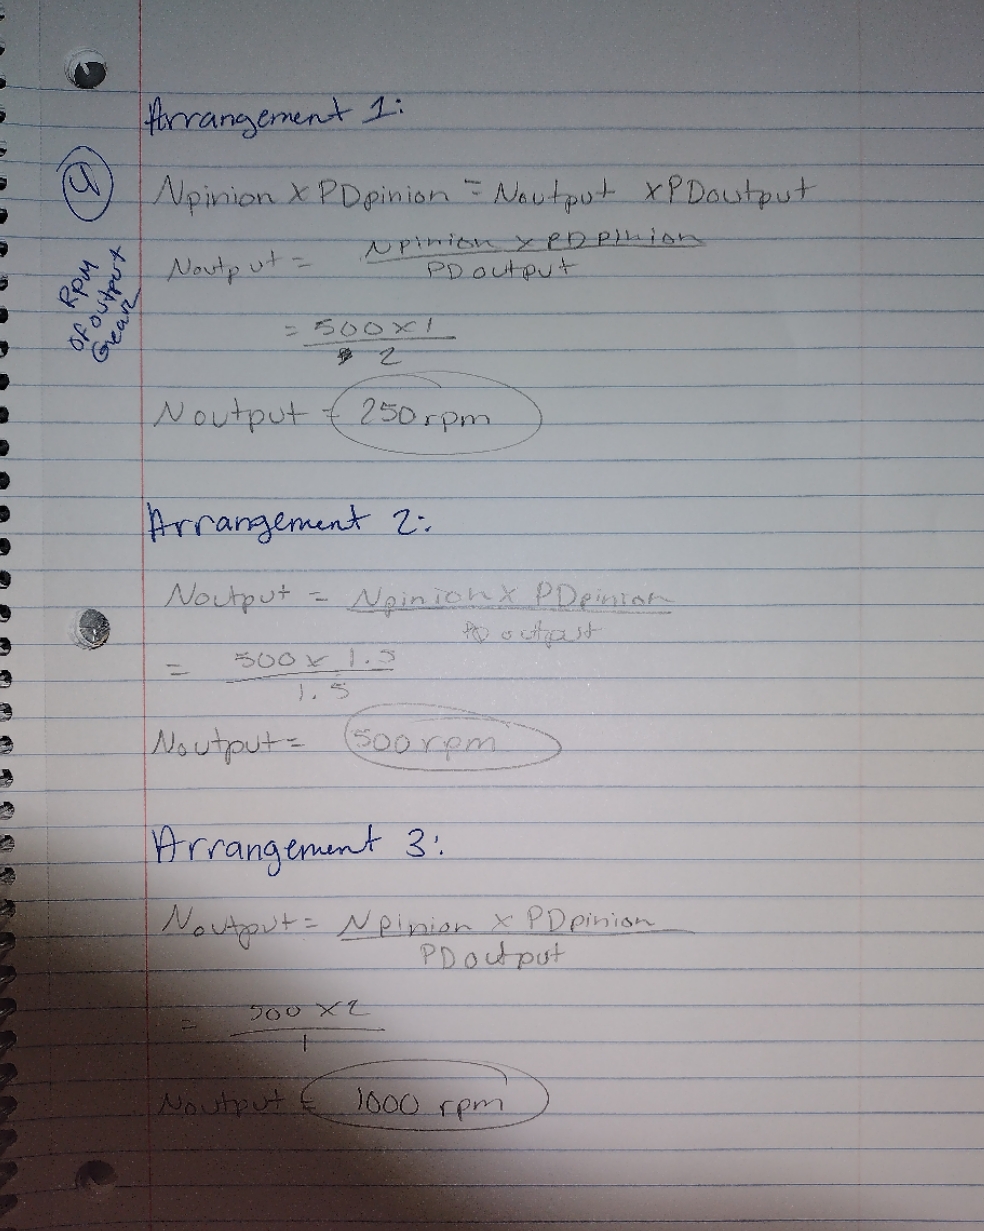 Arrangement 1:
4
Npinion x PDpinion = Noutput x PDoutput
RPM
of output
Gear
Noutput = Npinion x PDpinion
PD output
= 500 x 1
2
Noutput = 250 rpm
Arrangement 2:
Noutput = Npinion x PDpinion
PD output
= 500 x 1.5
1.5
Noutput = 500 rpm
Arrangement 3:
Noutput = Npinion x PDpinion
PD output
= 500 x 2
1
Noutput = 1000 rpm